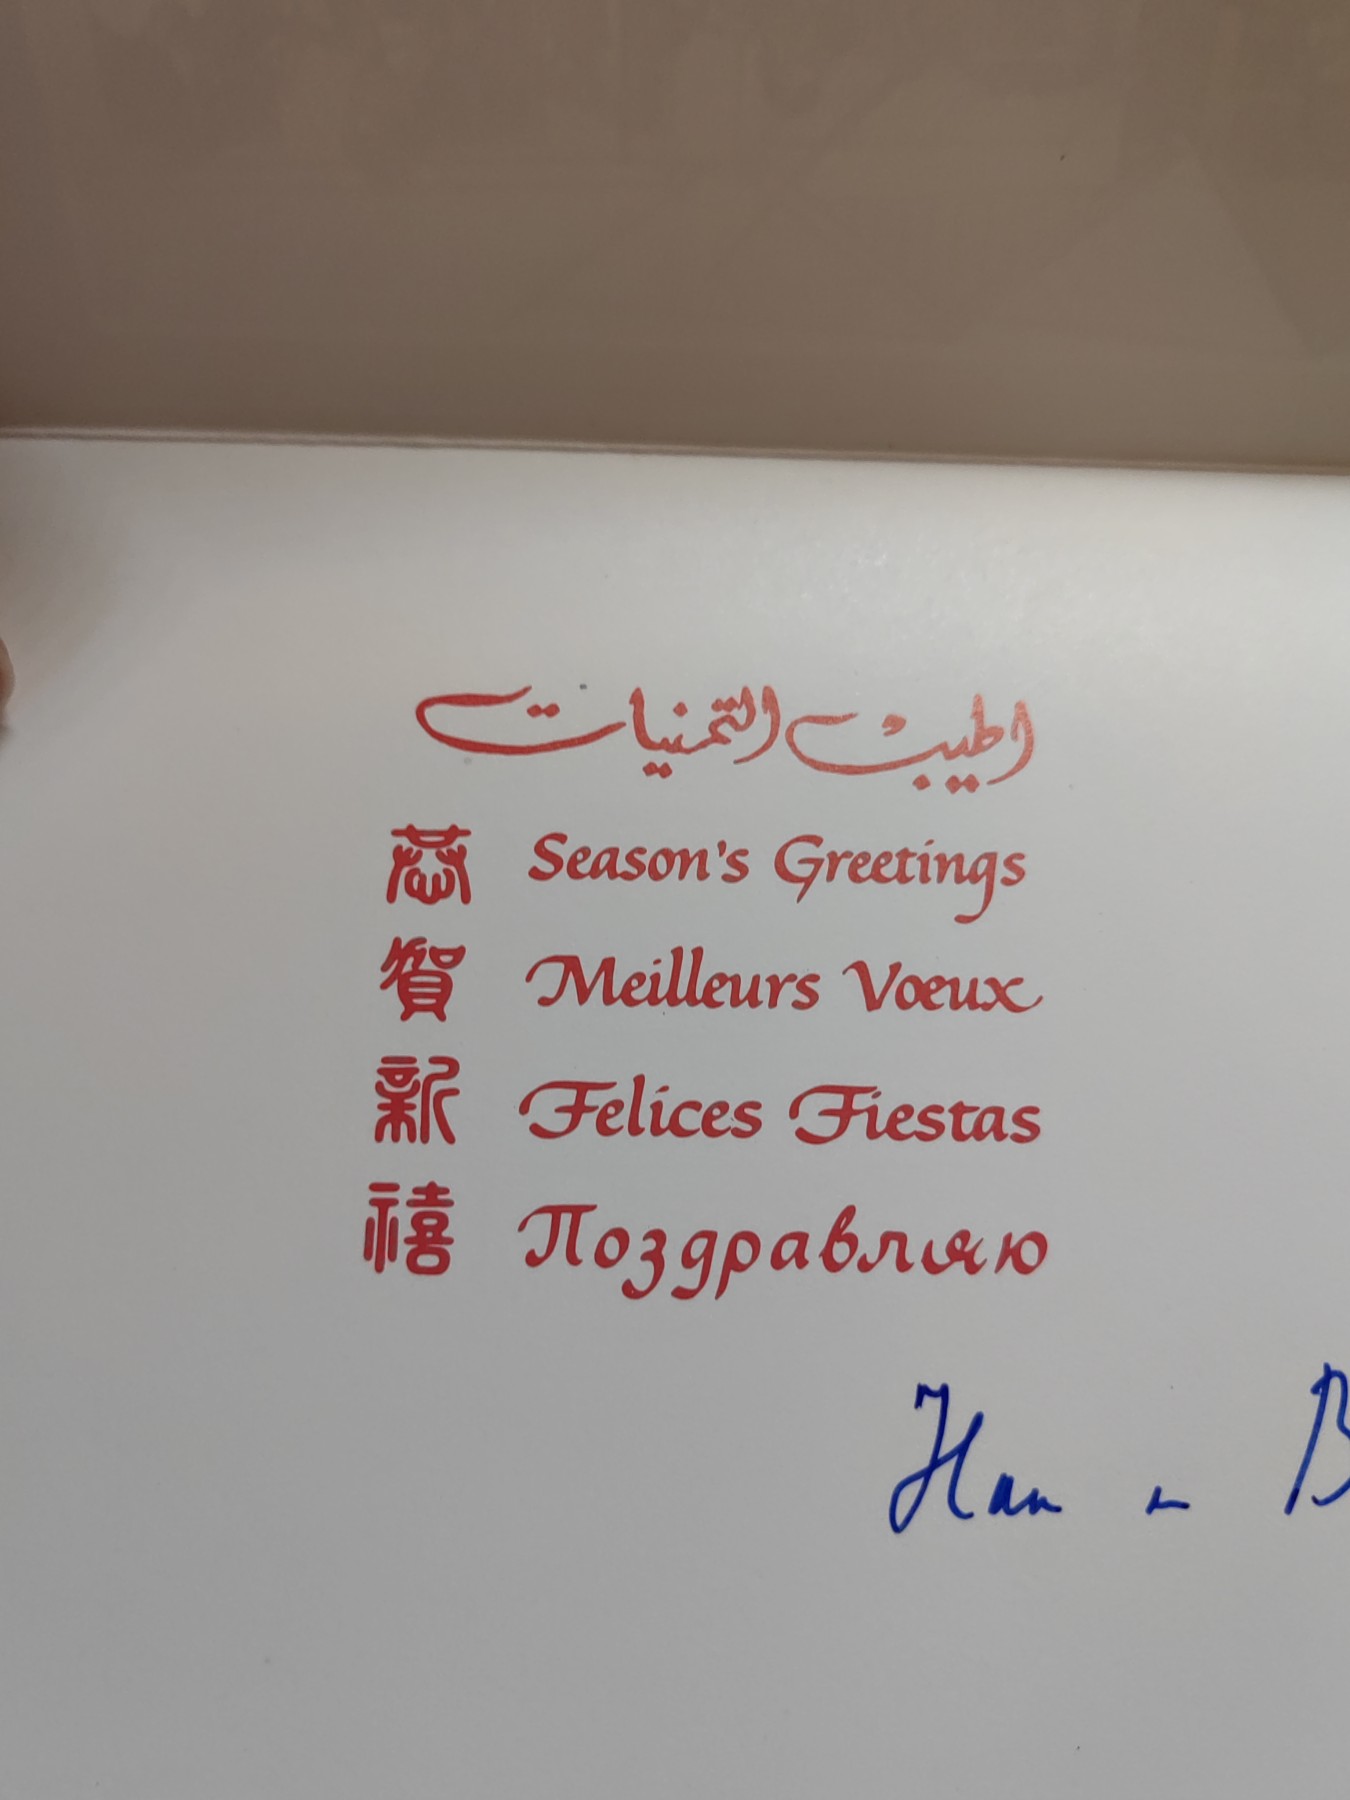 اطيب التمنيات
恭賀新禧
Season's Greetings
Meilleurs Vœux
Felices Fiestas
Поздравляю